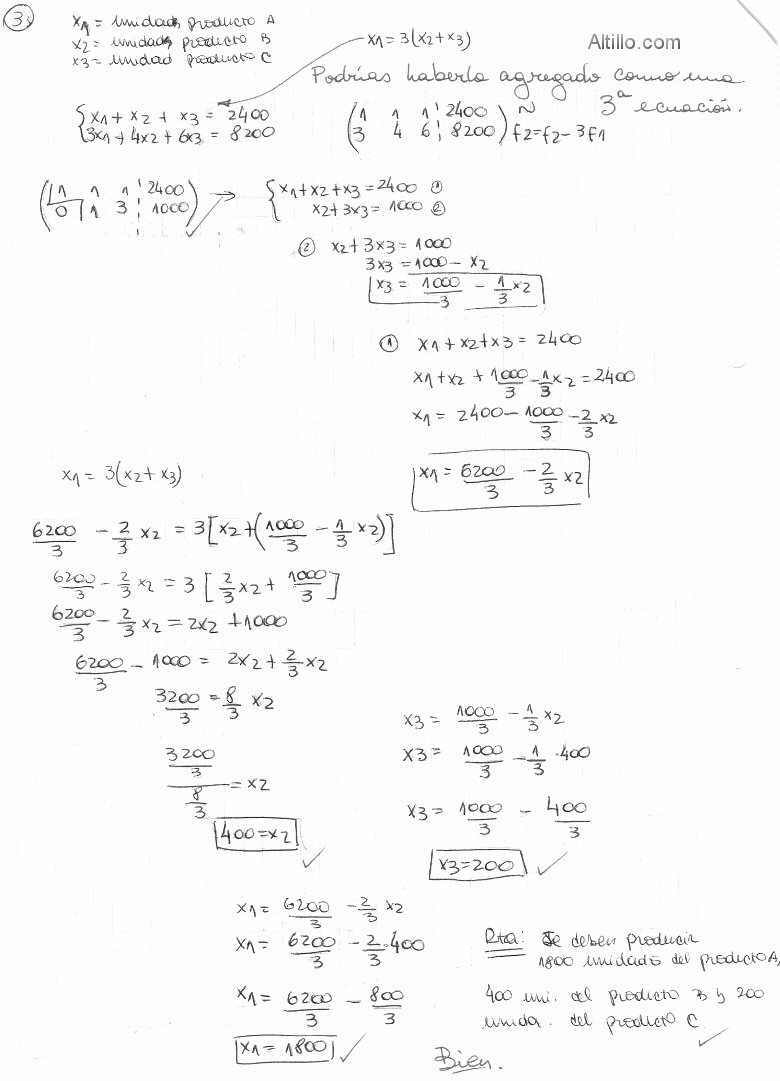 3) x1 = unidades producto A
x2 = unidades producto B
x3 = unidad producto C
x1 = 3(x2 + x3)
Altillo.com
Podrías haberla agregado como una
3ª ecuación.
{ x1 + x2 + x3 = 2400
3x1 + 4x2 + 6x3 = 8200
( 1 1 1 ¦ 2400
3 4 6 ¦ 8200 ) ~ f2 = f2 - 3f1
( 1 1 1 ¦ 2400
0 1 3 ¦ 1000 ) → { x1 + x2 + x3 = 2400 ①
x2 + 3x3 = 1000 ②
② x2 + 3x3 = 1000
3x3 = 1000 - x2
x3 = 1000/3 - 1/3 x2
① x1 + x2 + x3 = 2400
x1 + x2 + 1000/3 - 1/3 x2 = 2400
x1 = 2400 - 1000/3 - 2/3 x2
x1 = 6200/3 - 2/3 x2
x1 = 3(x2 + x3)
6200/3 - 2/3 x2 = 3[x2 + (1000/3 - 1/3 x2)]
6200/3 - 2/3 x2 = 3 [2/3 x2 + 1000/3]
6200/3 - 2/3 x2 = 2x2 + 1000
6200/3 - 1000 = 2x2 + 2/3 x2
3200/3 = 8/3 x2
3200/3 / 8/3 = x2
400 = x2 ✓
x3 = 1000/3 - 1/3 x2
x3 = 1000/3 - 1/3 . 400
x3 = 1000/3 - 400/3
x3 = 200 ✓
x1 = 6200/3 - 2/3 x2
x1 = 6200/3 - 2/3 . 400
x1 = 6200/3 - 800/3
x1 = 1800 ✓
Rta: Se deben producir
1800 unidades del producto A,
400 uni. del producto B y 200
unida. del producto C ✓
Bien.